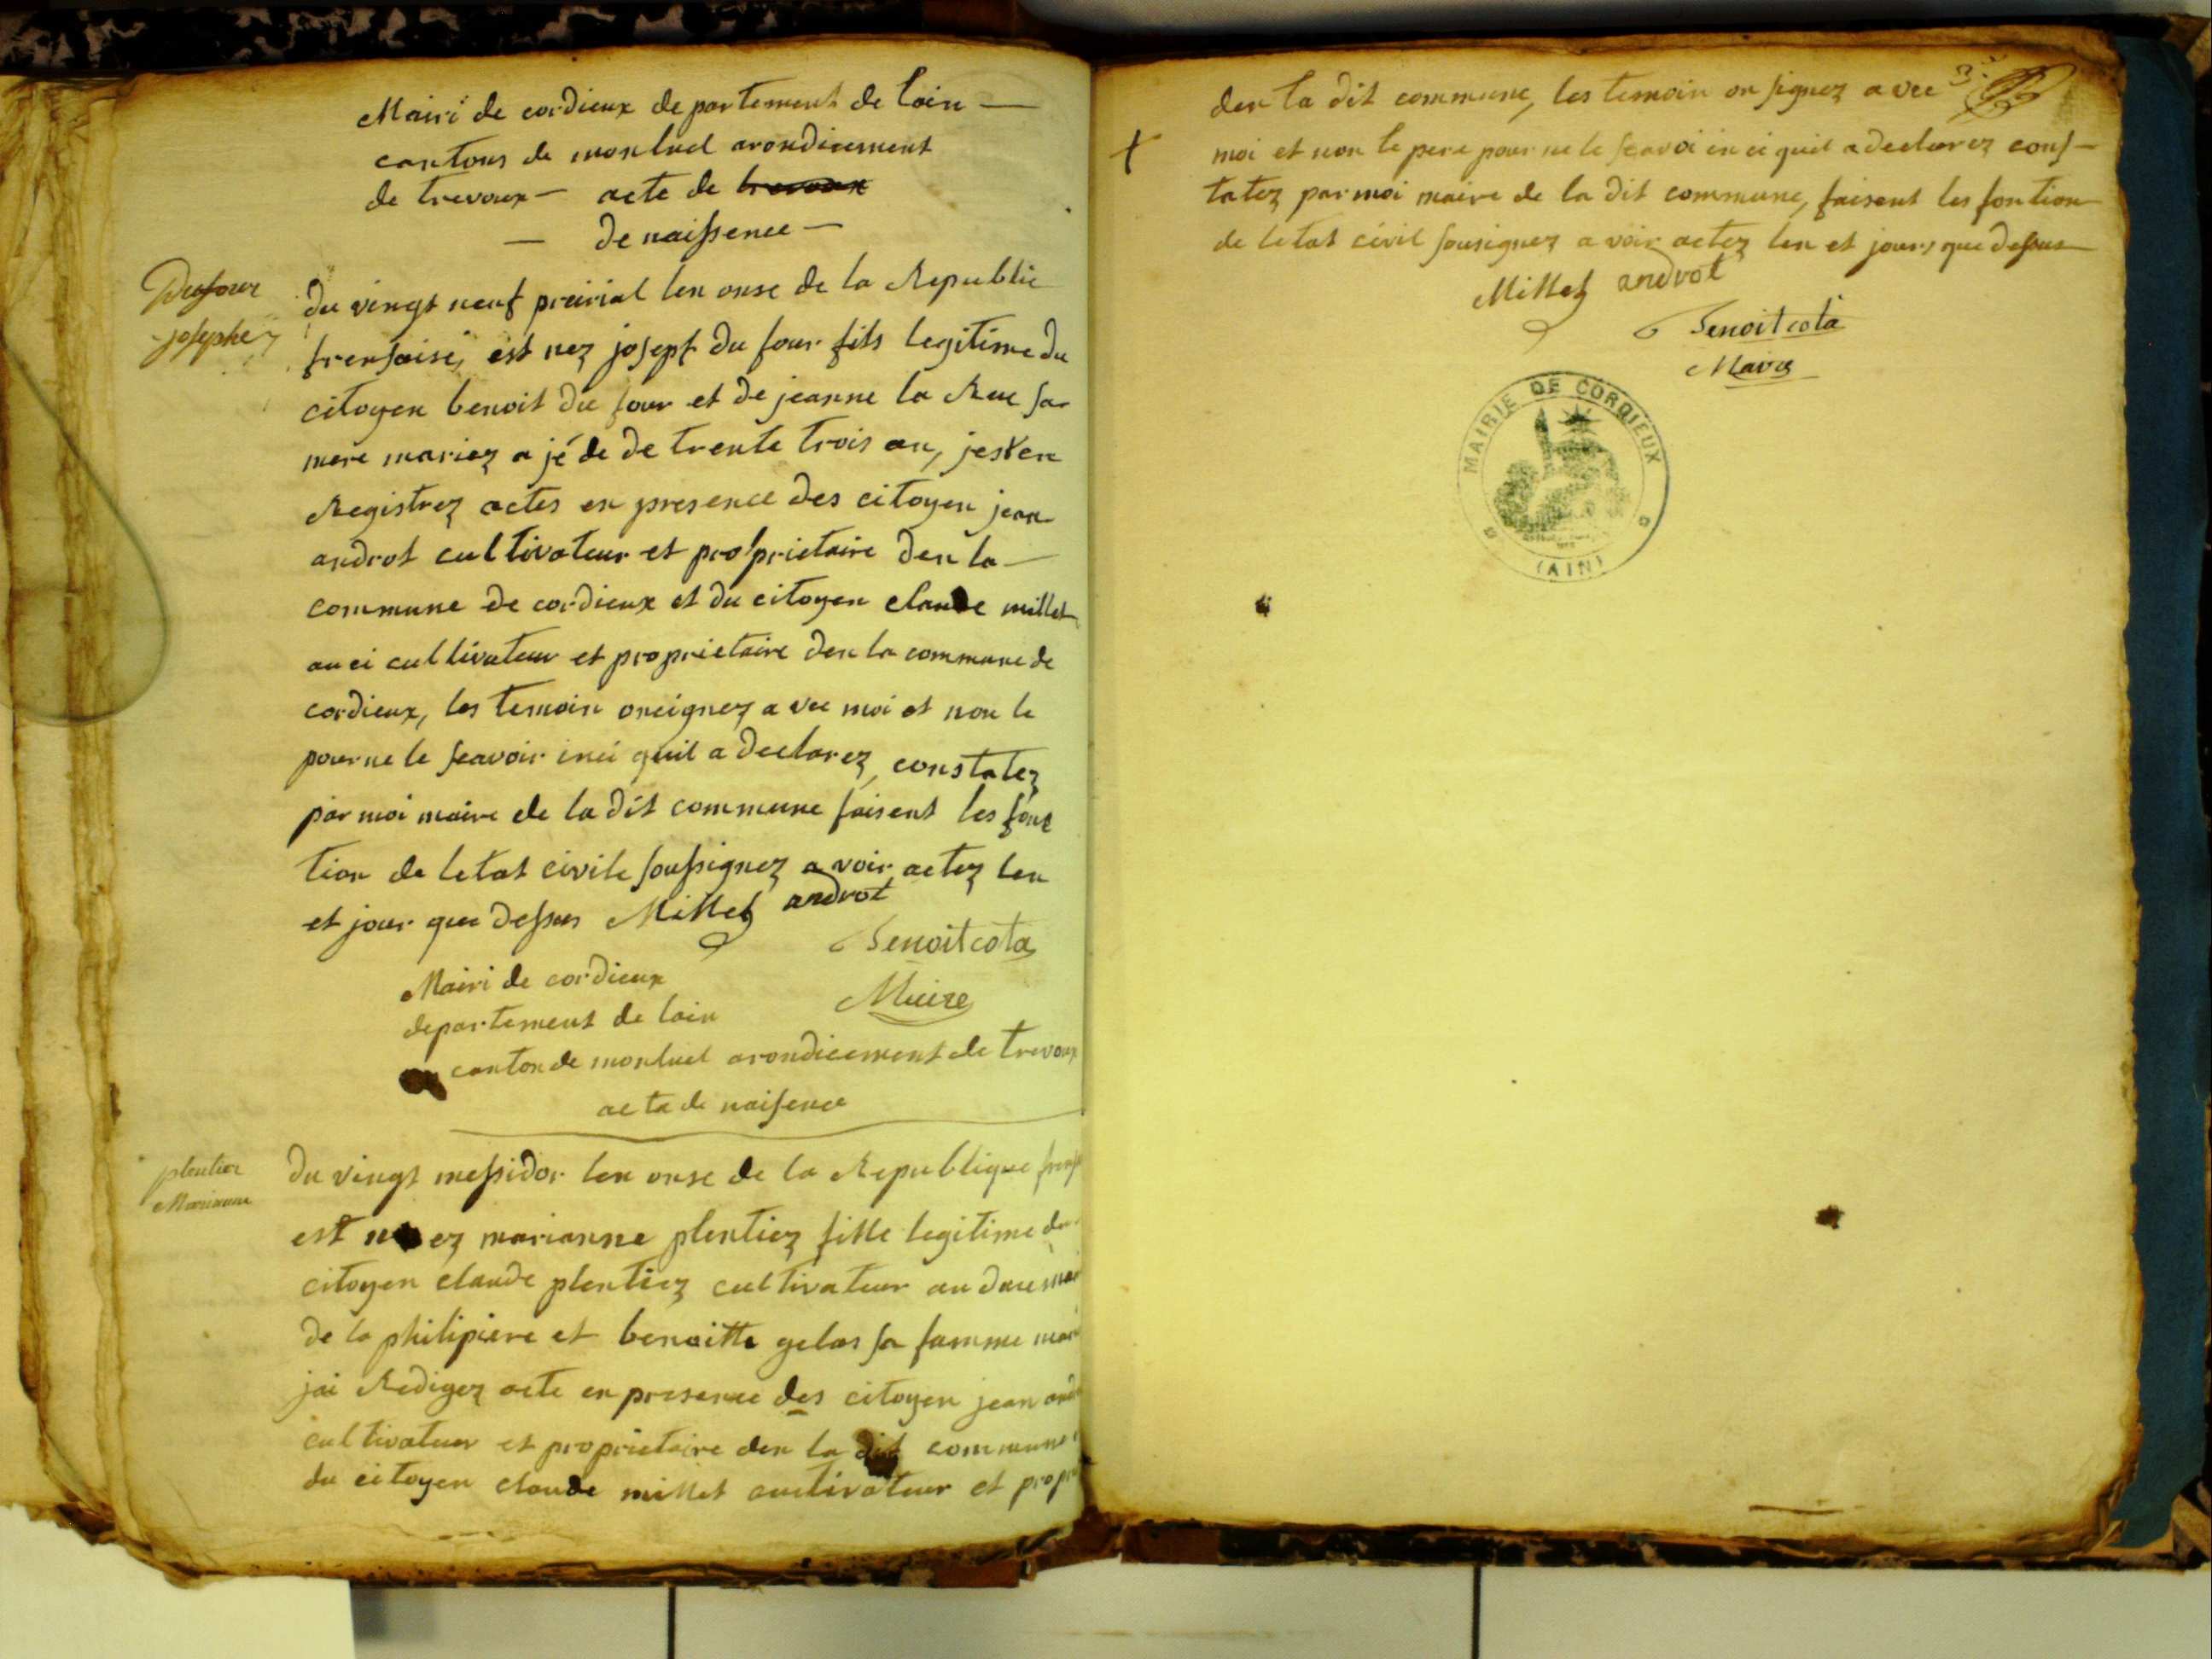 Mairi de cordieux departement de lain —
cantons de monluel arondicement
de trevoux — acte de trevoux
— de naissence —
Dufour
josephe
du vingt neuf preirial len onse de la Republic
frensaise, est nez josept du four fils legitime du
citoyen benoit du four et de jeanne la Rue sa
mere mariez a jé de de trente trois an, jest en
Registrez actes en presence des citoyen jean
androt cultivateur et proprietaire den la —
commune de cordieux et du citoyen claude millet
auci cultivateur et proprietaire den la commune de
cordieux, les temoin oncignez a vec moi et non le
pour ne le seavoir inci quil a declarez, constatez
par moi maire de la dit commune faisent les fonc
tion de letat civile soussignez a voir actez len
et jour que dessus Millet androt
Benoit cota
Maire
Mairi de cordieux
departement de lain
canton de monluel arondicement de trevoux
acta de naissence
plentier
Marianne
du vingt messidor len onse de la Republique
est nez marianne plentiez fille legitime du
citoyen claude plentiez cultivateur au
de la philipiere et benoitte gelas sa famme
jai Redigez acte en presence des citoyen jean
cultivateur et proprietaire den la dit commune
du citoyen claude millet cultivateur et
den la dit commune, les temoin on signez a vec
moi et non le pere pour ne le seavoi in ci quil a declarez cons-
tatez par moi maire de la dit commune, faisent les fontion
de letat civil sousignez a voir actez len et jours que dessus
Millet androt
Benoit cota
Maire
MAIRIE DE CORDIEUX
(AIN)